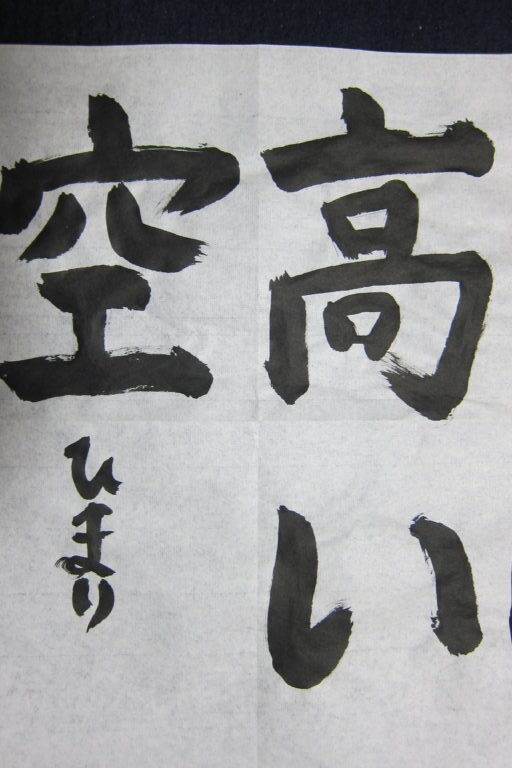 高い
空
ひまり